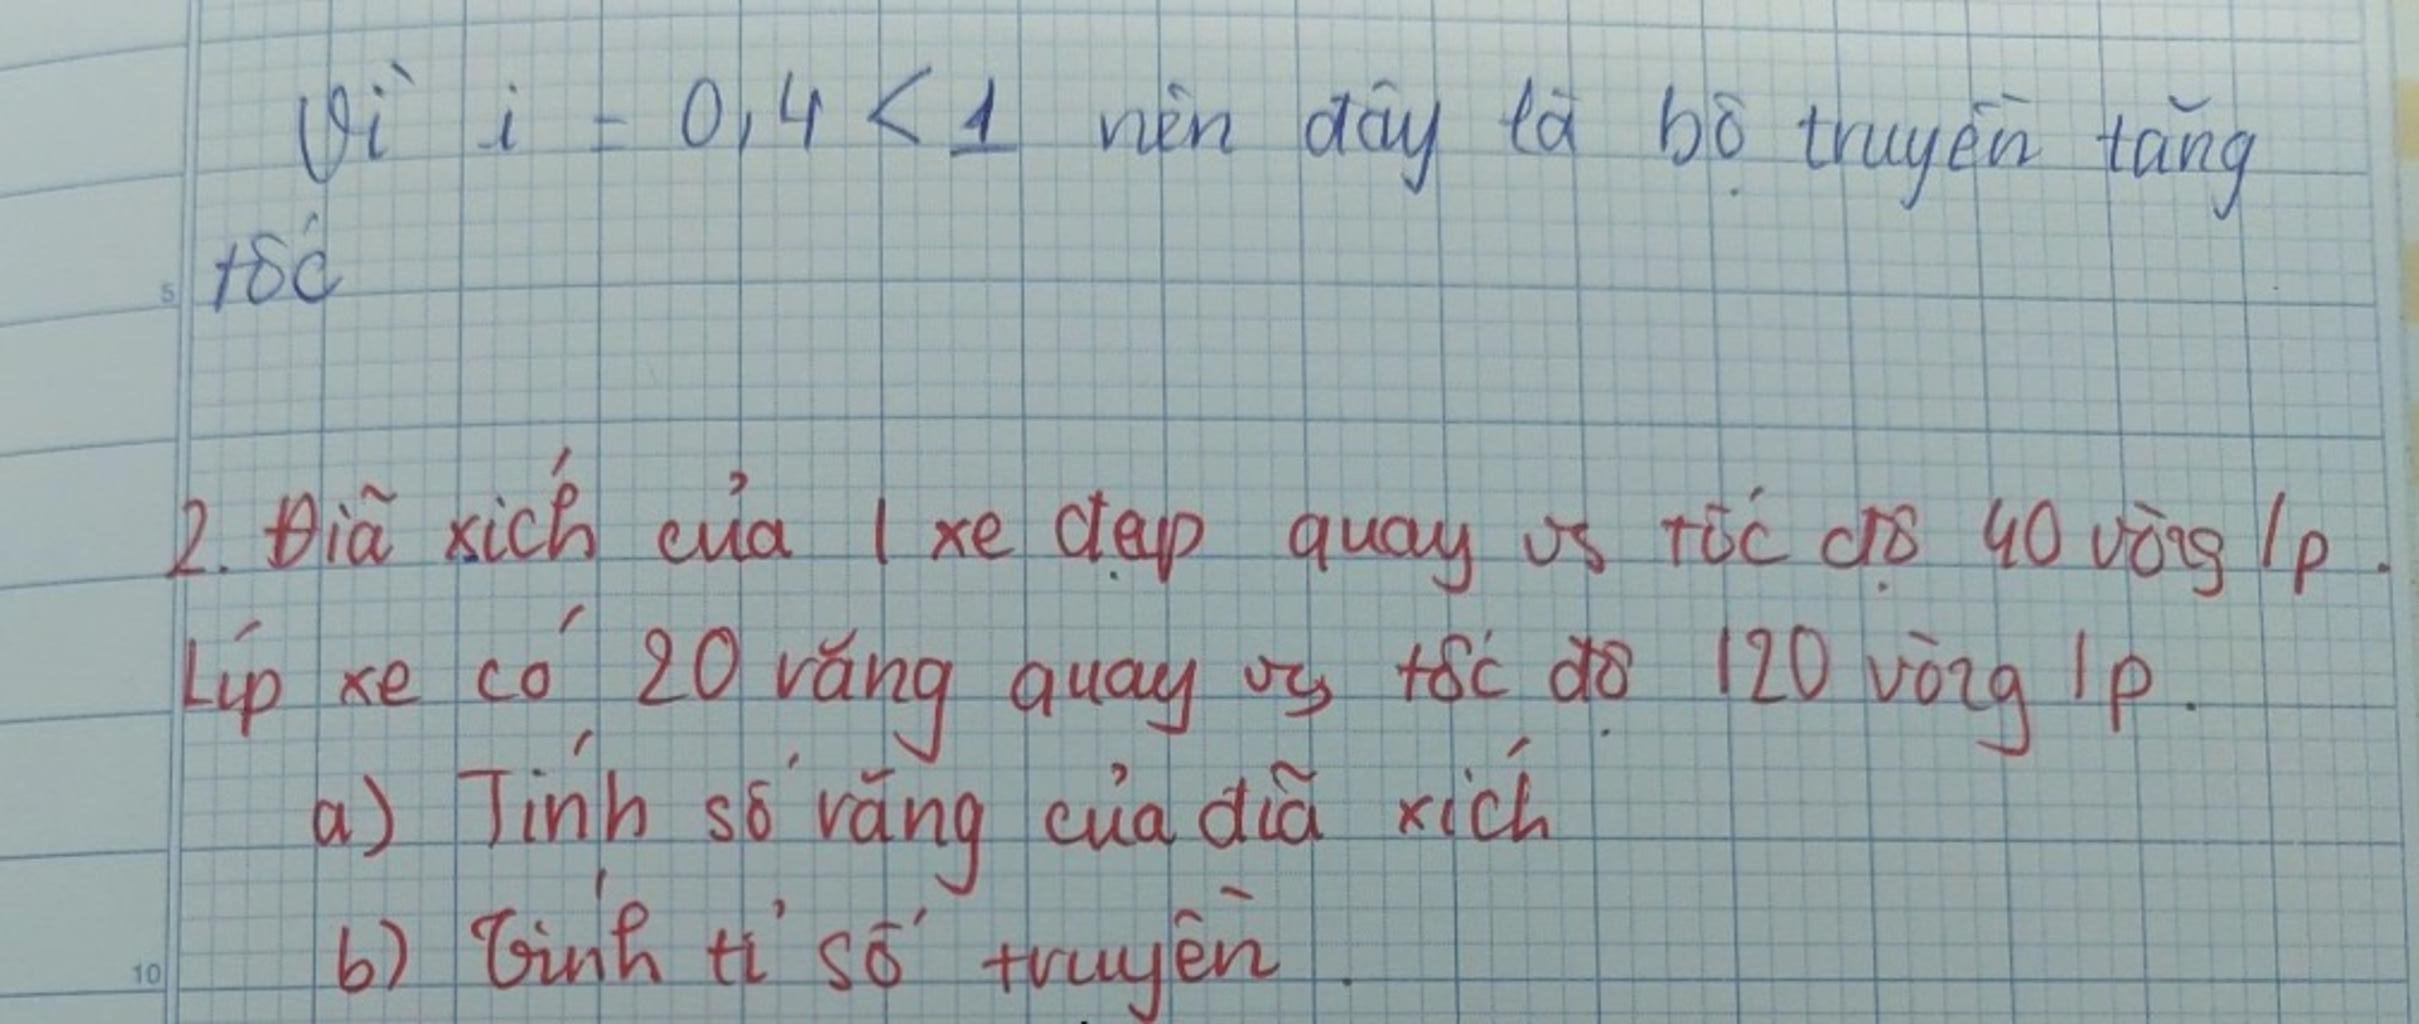 Vì i = 0,4 < 1 nên đây là bộ truyền tăng
tốc
5
2. Đĩa xích của 1 xe đạp quay vs tốc độ 40 vòng /p.
Líp xe có 20 răng quay vs tốc độ 120 vòng /p.
a) Tính số răng của đĩa xích
b) Tính tỉ số truyền.
10